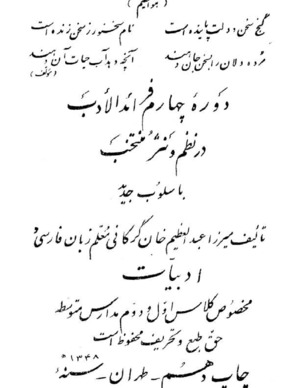 ( هوالعلیم )
گنج سخن دولت پاینده است نام سخنور ز سخن زنده است
مرده دلان را سخن جان دهند آنچه دهد آب حیات آن دهند
(مؤلف)
دورهٔ چهارم فرائدالأدب
در نظم و نثر منتخب
با سلوب جدید
تألیف میرزا عبدالعظیم خان گرکانی معلم زبان فارسی و
ادبیّات
مخصوص کلاس اول و دوم مدارس متوسطه
حق طبع و تحریف محفوظ است
چاپ دهم - طهران - سنهٔ ۱۳۴۸